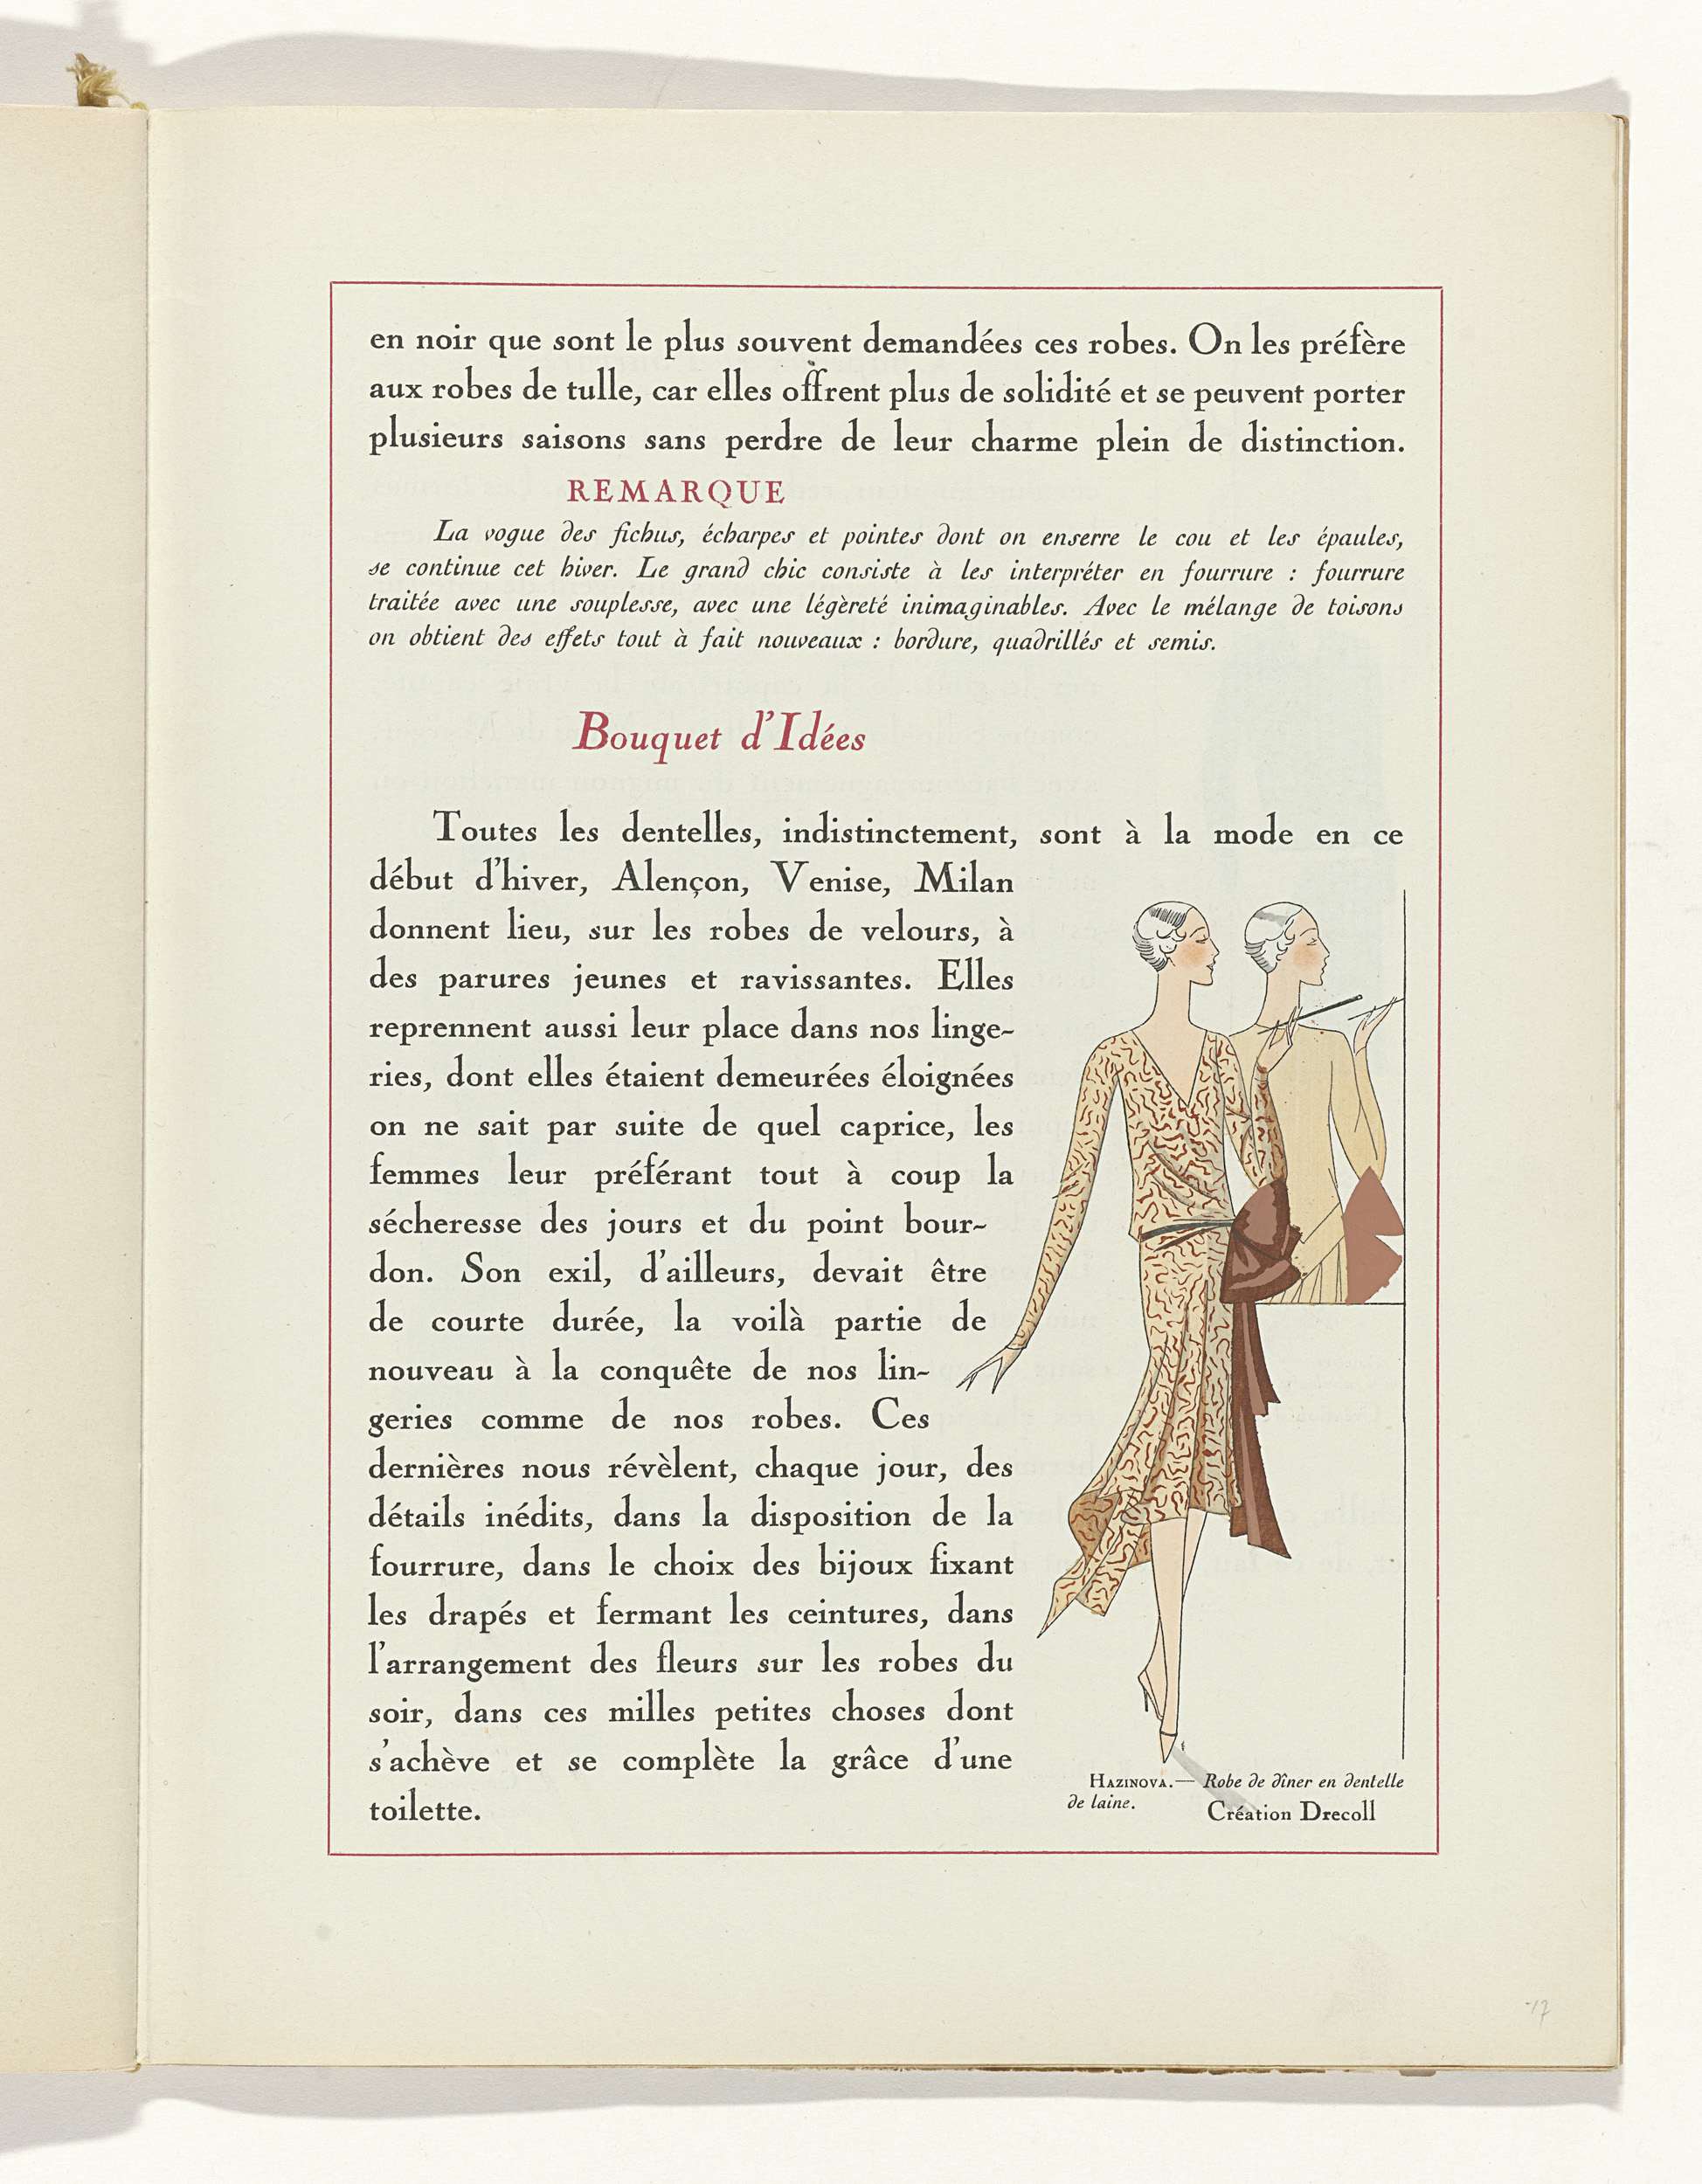 en noir que sont le plus souvent demandées ces robes. On les préfère
aux robes de tulle, car elles offrent plus de solidité et se peuvent porter
plusieurs saisons sans perdre de leur charme plein de distinction.
REMARQUE
La vogue des fichus, écharpes et pointes dont on enserre le cou et les épaules,
se continue cet hiver. Le grand chic consiste à les interpréter en fourrure : fourrure
traitée avec une souplesse, avec une légèreté inimaginables. Avec le mélange de toisons
on obtient des effets tout à fait nouveaux : bordure, quadrillés et semis.
Bouquet d'Idées
Toutes les dentelles, indistinctement, sont à la mode en ce
début d'hiver, Alençon, Venise, Milan
donnent lieu, sur les robes de velours, à
des parures jeunes et ravissantes. Elles
reprennent aussi leur place dans nos linge-
ries, dont elles étaient demeurées éloignées
on ne sait par suite de quel caprice, les
femmes leur préférant tout à coup la
sécheresse des jours et du point bour-
don. Son exil, d'ailleurs, devait être
de courte durée, la voilà partie de
nouveau à la conquête de nos lin-
geries comme de nos robes. Ces
dernières nous révèlent, chaque jour, des
détails inédits, dans la disposition de la
fourrure, dans le choix des bijoux fixant
les drapés et fermant les ceintures, dans
l'arrangement des fleurs sur les robes du
soir, dans ces milles petites choses dont
s'achève et se complète la grâce d'une
toilette.
HAZINOVA.— Robe de dîner en dentelle
de laine.
Création Drecoll
17